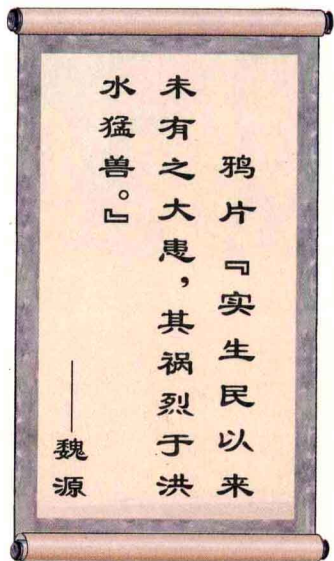 鸦片『实生民以来
未有之大患，其祸烈于洪
水猛兽。』
——魏源